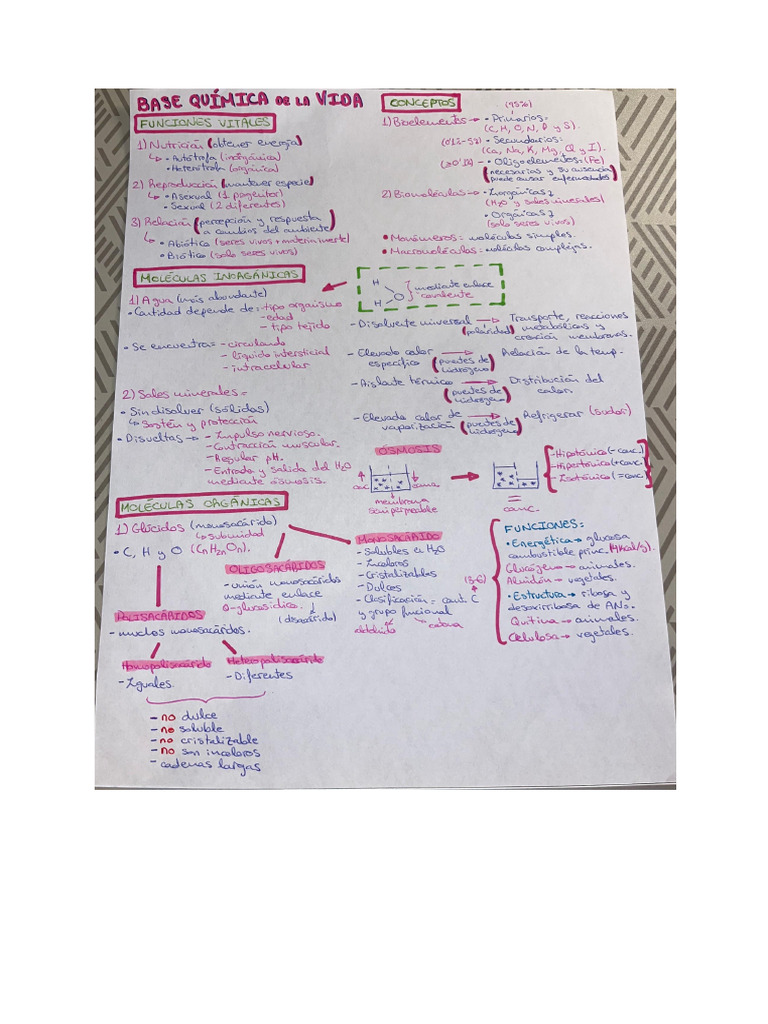 BASE QUÍMICA DE LA VIDA
FUNCIONES VITALES
1) Nutrición (obtener energía)
↳ • Autótrofa (inorgánica)
• Heterótrofa (orgánica)
2) Reproducción (mantener especie)
↳ • Asexual (1 pogenitor)
• Sexual (2 diferentes)
3) Relación (percepción y respuesta
a cambios del ambiente)
↳ • Abiótica (seres vivos + materia inerte)
• Biótica (solo seres vivos)
CONCEPTOS
(95%)
1) Bioelementos → • Primarios:
(C, H, O, N, P y S).
• Secundarios:
(Ca, Na, K, Mg, Cl y I).
• Oligoelementos: (Fe)
(necesarias y su ausencia
puede causar enfermedades)
2) Biomoléculas → • Inorgánicas
(H2O y sales minerales)
• Orgánicas
(solo seres vivos)
• Monómeros = moléculas simples.
• Macromoléculas = moléculas complejas.
MOLÉCULAS INOAGÁNICAS
H
H O } mediante enlace
covalente
1) Agua (más abundante)
• Cantidad depende de: - tipo organismo
- edad
- tipo tejido
• Se encuentras - circulando
- líquido intersticial
- intracelular
- Disolvente universal → Transporte, reacciones
(polaridad) metabólicas y
creación membranas.
- Elevado calor → Relación de la temp.
específico (puentes de
hidrógeno)
- Aislante térmico → Distribución del
(puentes de calor.
hidrógeno)
- Elevado calor de → Refrigerar (sudor)
vaporización (puentes de
hidrógeno)
2) Sales minerales =
• Sin disolver (sólidas)
↳ Sostén y protección
• Disueltas → - Impulso nervioso.
- Contracción muscular.
- Regular pH.
- Entrada y salida del H2O
mediante ósmosis.
OSMOSIS
membrana
semipermeable
=
conc.
- Hipotónica (- conc.)
- Hipertónica (+ conc.)
- Isotónica (= conc.)
MOLÉCULAS ORGÁNICAS
1) Glúcidos (monosacárido)
↳ subunidad
• C, H y O (CnH2nOn).
OLIGOSACÁRIDOS
- unión monosacáridos
mediante enlace
O-glucosídico.
(disacárido)
MONOSACÁRIDO
- Solubles en H2O
- Incoloros
- Cristalizables
- Dulces (3-6)
- Clasificación = cant. C
y grupo funcional
aldehído cetona
FUNCIONES:
• Energética → glucosa
combustible princ. (4Kcal/g).
Glucógeno → animales.
Almidón → vegetales.
• Estructura → ribosa y
desoxirribosa de ANs.
Quitina → animales.
Celulosa → vegetales.
POLISACÁRIDOS
- muchos monosacáridos.
Homopolisacárido
- Iguales.
Heteropolisacárido
- Diferentes
- no dulce
- no soluble
- no cristalizable
- no son incoloros
- cadenas largas